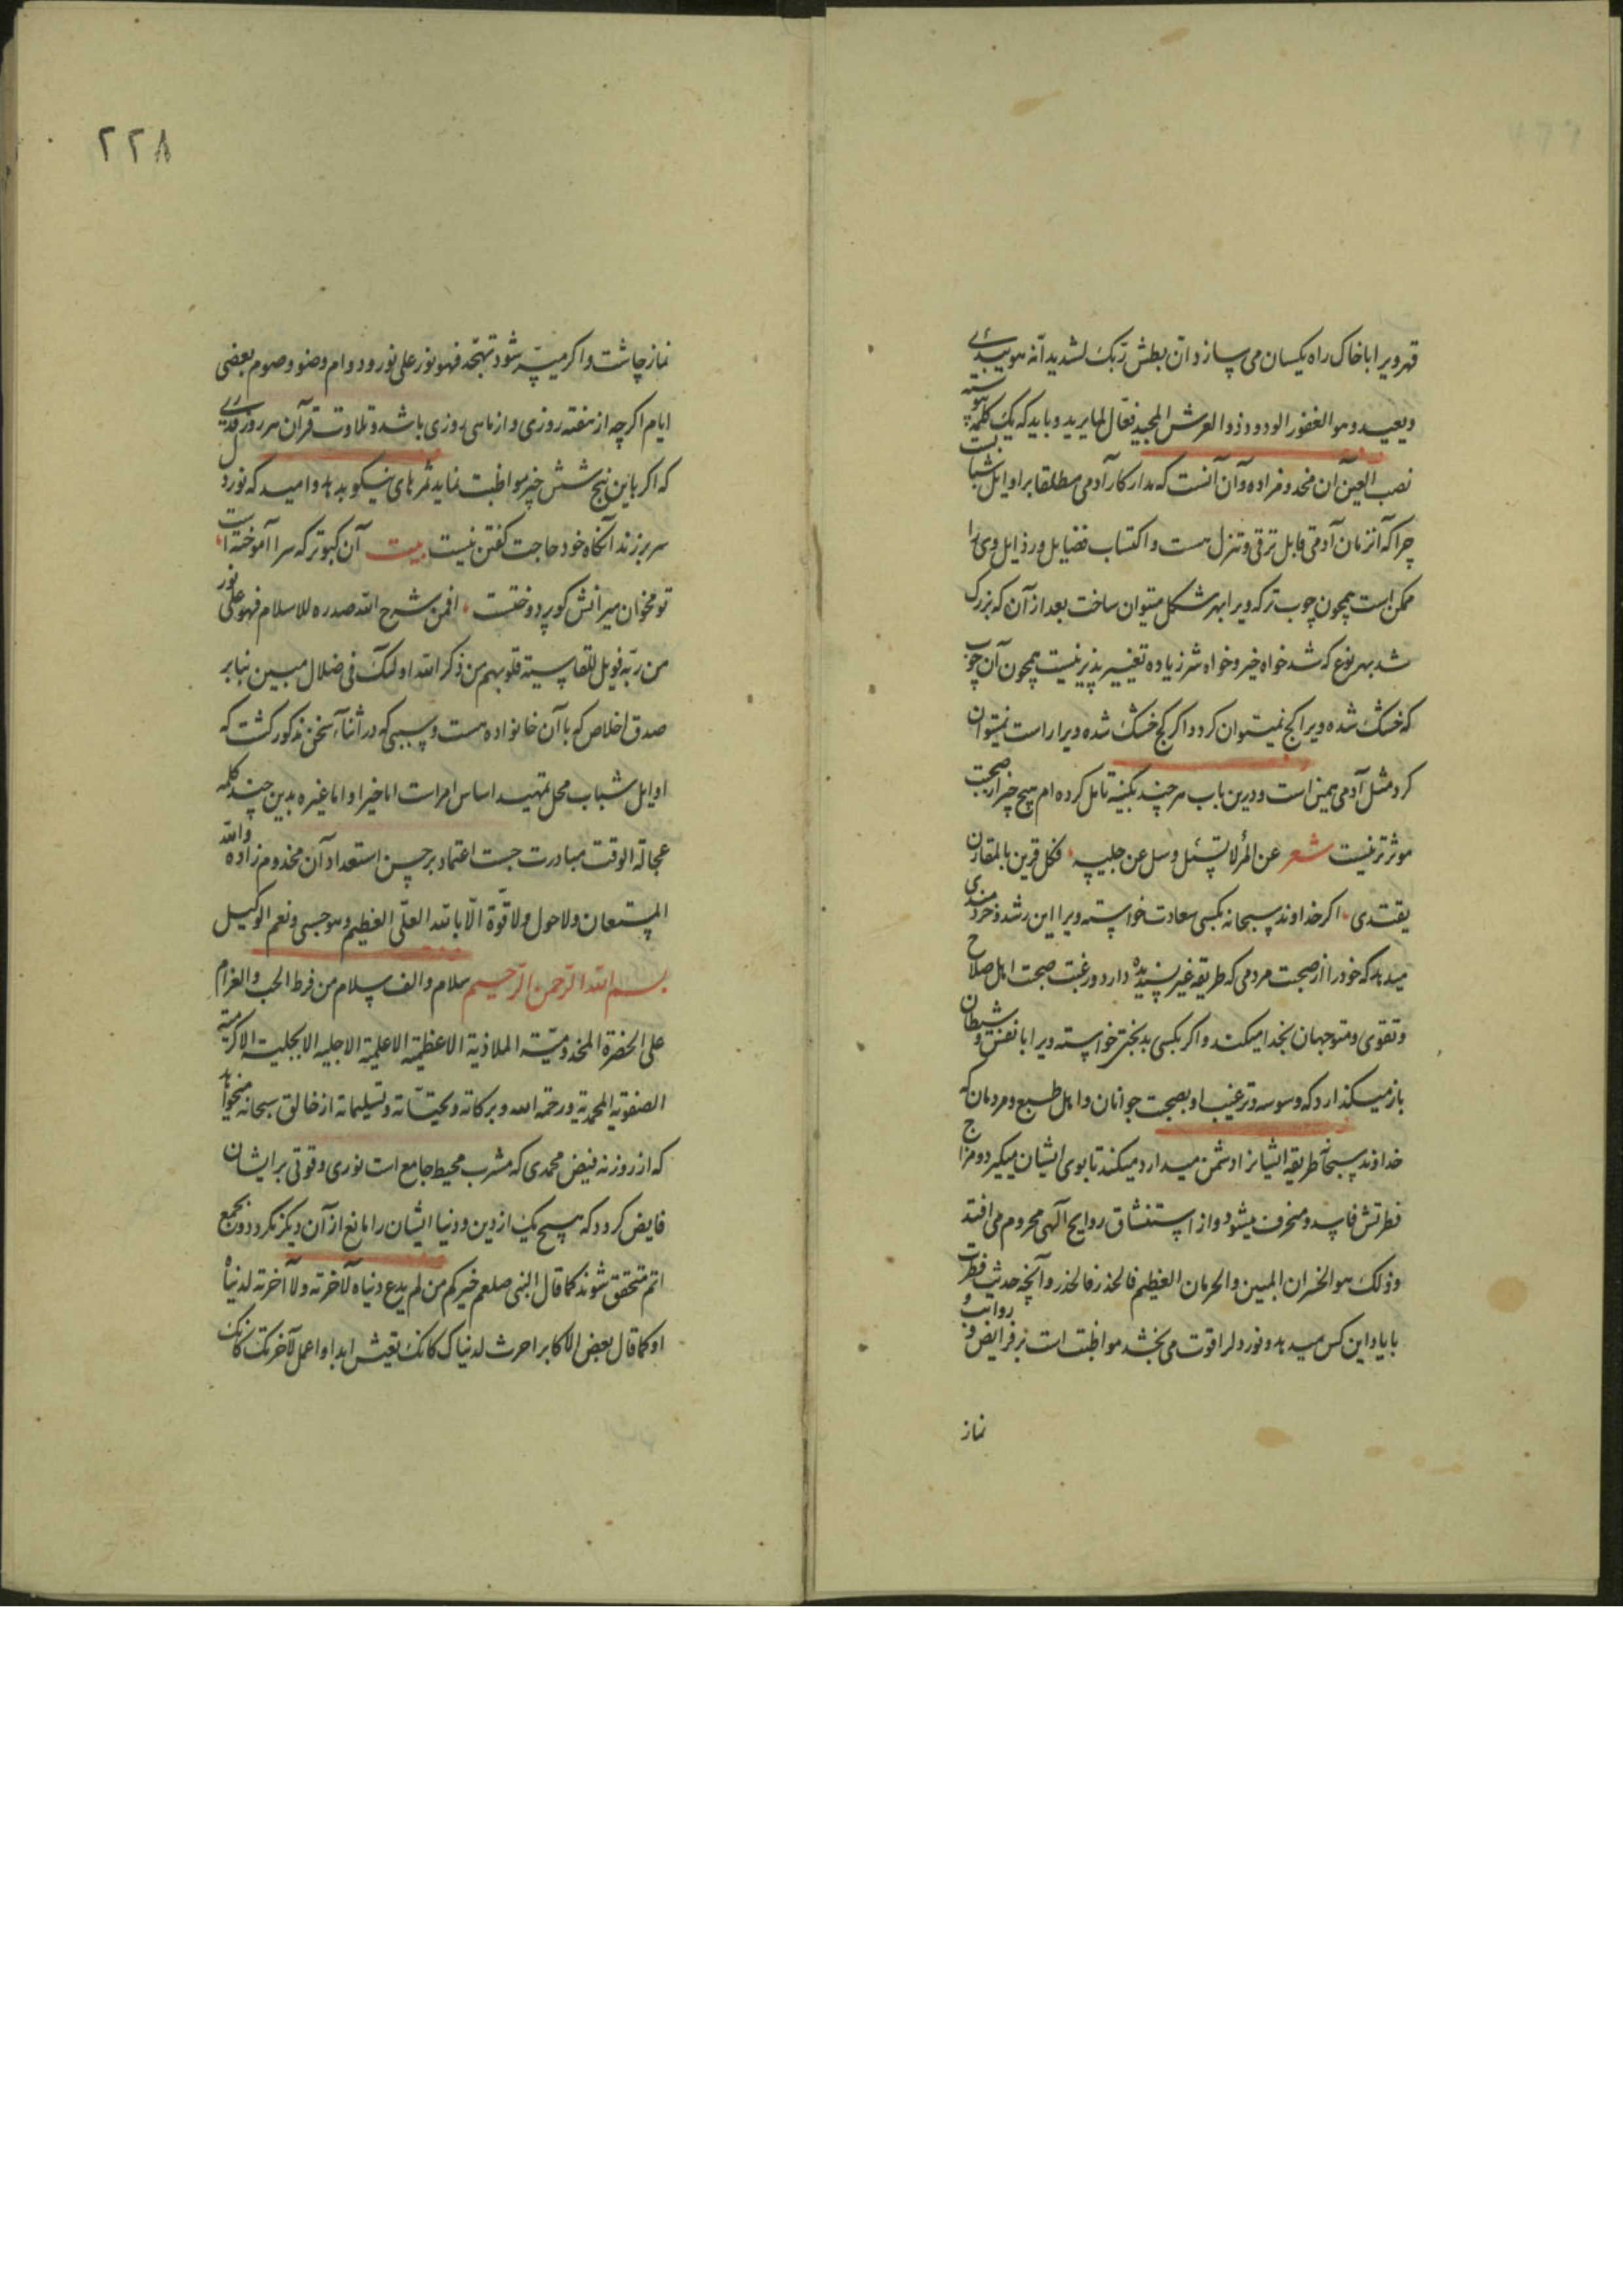 قهر ویرا با خاک راه یکسان می سازد و ان بطش ربک لشدید انه هو یبدئ
و یعید و هو الغفور الودود ذو العرش المجید فعال لما یرید و باید که یک کلمه پیوسته
نصب العین آن مخدوم زاده و آن آنست که مدار کار آدمی مطلقا بر اوایل شبا بست
چرا که آن زمان آدمی قابل ترقی و تنزل هست و اکتساب فضایل و رذایل وی را
ممکن است همچون چوب تر که ویرا بهر شکل میتوان ساخت بعد از آن که بزرک
شد بهر نوع که شد خواه خیر و خواه شر زیاده تغییر پذیر نیست همچون آن چوب
که خشک شده ویرا کج نمیتوان کرد و اکر کج خشک شده ویرا راست نمیتوان
کرد مثل آدمی همین است و درین باب هر چند بکینه تامل کرده ام هیچ چیز از صحبت
موثر تر نیست شعر عن المرء لا تسئل و سل عن جلیسه فکل قرین بالمقارن
یقتدی اکر خداوند سبحانه بکسی سعادت خواسته ویرا این رشد و خردمندی
میدهد که خود را از صحبت مردمی که طریقه غیر پسندیده دارد و رغبت صحبت اهل صلاح
و تقوی و متوجهان بخدا میکند و اکر بکسی بدبختی خواسته ویرا با نفس و شیطان
باز میکذارد که وسوسه و ترغیب او بصحبت جوانان و اهل طبع و مردمان که
خداوند سبحانه طریقه ایشانرا دشمن میدارد میکند تا بوی ایشان میکیرد و مزاج
فطرتش فاسد و منحرف میشود و از استنشاق روایح آلهی محروم می افتد
و ذلک هو الخسران المبین و الحرمان العظیم فالحذر فالحذر و آنچه حدیث فطرت
با یاد این کس میدهد و نور دلرا قوت می بخشد مواظبت است بر فرایض و رواتب و
نماز
۲۲۸
نماز چاشت و اکر میسر شود تهجد فهو نور علی نور و دوام وضو و صوم بعضی
ایام اکر چه از هفته روزی و از ماهی روزی باشد و تلاوت قرآن هر روز قدری
که اکر باین پنج شش چیز مواظبت نماید ثمرهای نیکو بدهد و امید که نور دل
سر بر زند آنکاه خود حاجت کفتن نیست بیت آن کبوتر که سرا آموخته است
تو مخوان میرانش کو پر دوختست افمن شرح الله صدره للاسلام فهو علی نور
من ربه فویل للقاسیة قلوبهم من ذکر الله اولئک فی ضلال مبین بنابر
صدق اخلاص که با آن خانواده هست و سببی که در اثنآء سخن مذکور کشت که
اوایل شباب محل تمهید اساس امر است اما خیرا و اما غیره بدین چند کلمه
عجالة الوقت مبادرت جست اعتماد بر حسن استعداد آن مخدوم زاده والله
المستعان و لا حول و لا قوة الا بالله العلی العظیم و هو حسبی و نعم الوکیل
بسم الله الرحمن الرحیم سلام و الف سلام من فرط الحب و الغرام
علی الحضرة المخدومیة الملاذیة الاعظمیة الاعلمیة الاجلیة الابجلیة الاکرمیة
الصفویة المحمدیة و رحمة الله و برکاته و تحیاته و تسلیماته از خالق سبحانه میخواهد
که از روزنه فیض محمدی که مشرب محیط جامع است نوری و قوتی بر ایشان
فایض کردد که هیچ یک از دین و دنیا ایشان را مانع از آن دیکر نکردد و بجمع
اتم متحقق شوند کما قال النبی صلعم خیرکم من لم یدع دنیاه لآخرته و لا آخرته لدنیاه
او کما قال بعض الاکابر احرث لدنیاک کانک تعیش ابدا و اعمل لآخرتک کانک